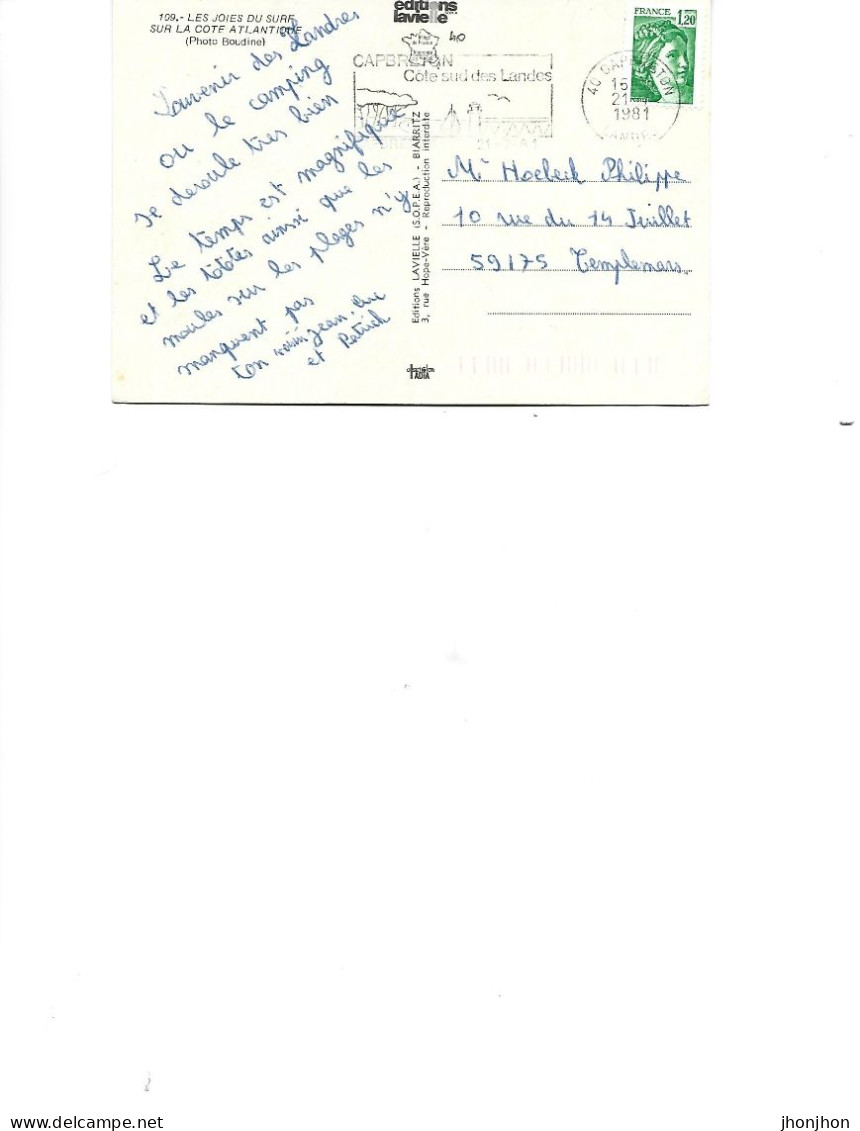 109.- LES JOIES DU SURF
SUR LA COTE ATLANTIQUE
(Photo Boudine)
editions
lavielle
40
FRANCE 1,20
CAPBRETON
Côte sud des Landes
40 CAPBRETON
15
21
1981
LANDES
Souvenir des Landres
ou le camping
se deroule tres bien
Le temps est magnifique
et les totótes ainsi que les
moules sur les plages n'y
manquent pas
Ton Jean. Luc
et Patrick
Editions LAVIELLE (S.O.P.E.A.) - BIARRITZ
3, rue Hope-Vère - Reproduction interdite
Mr Hoebeck Philippe
10 rue du 14 Juillet
59175 Templemars
jhonjhon